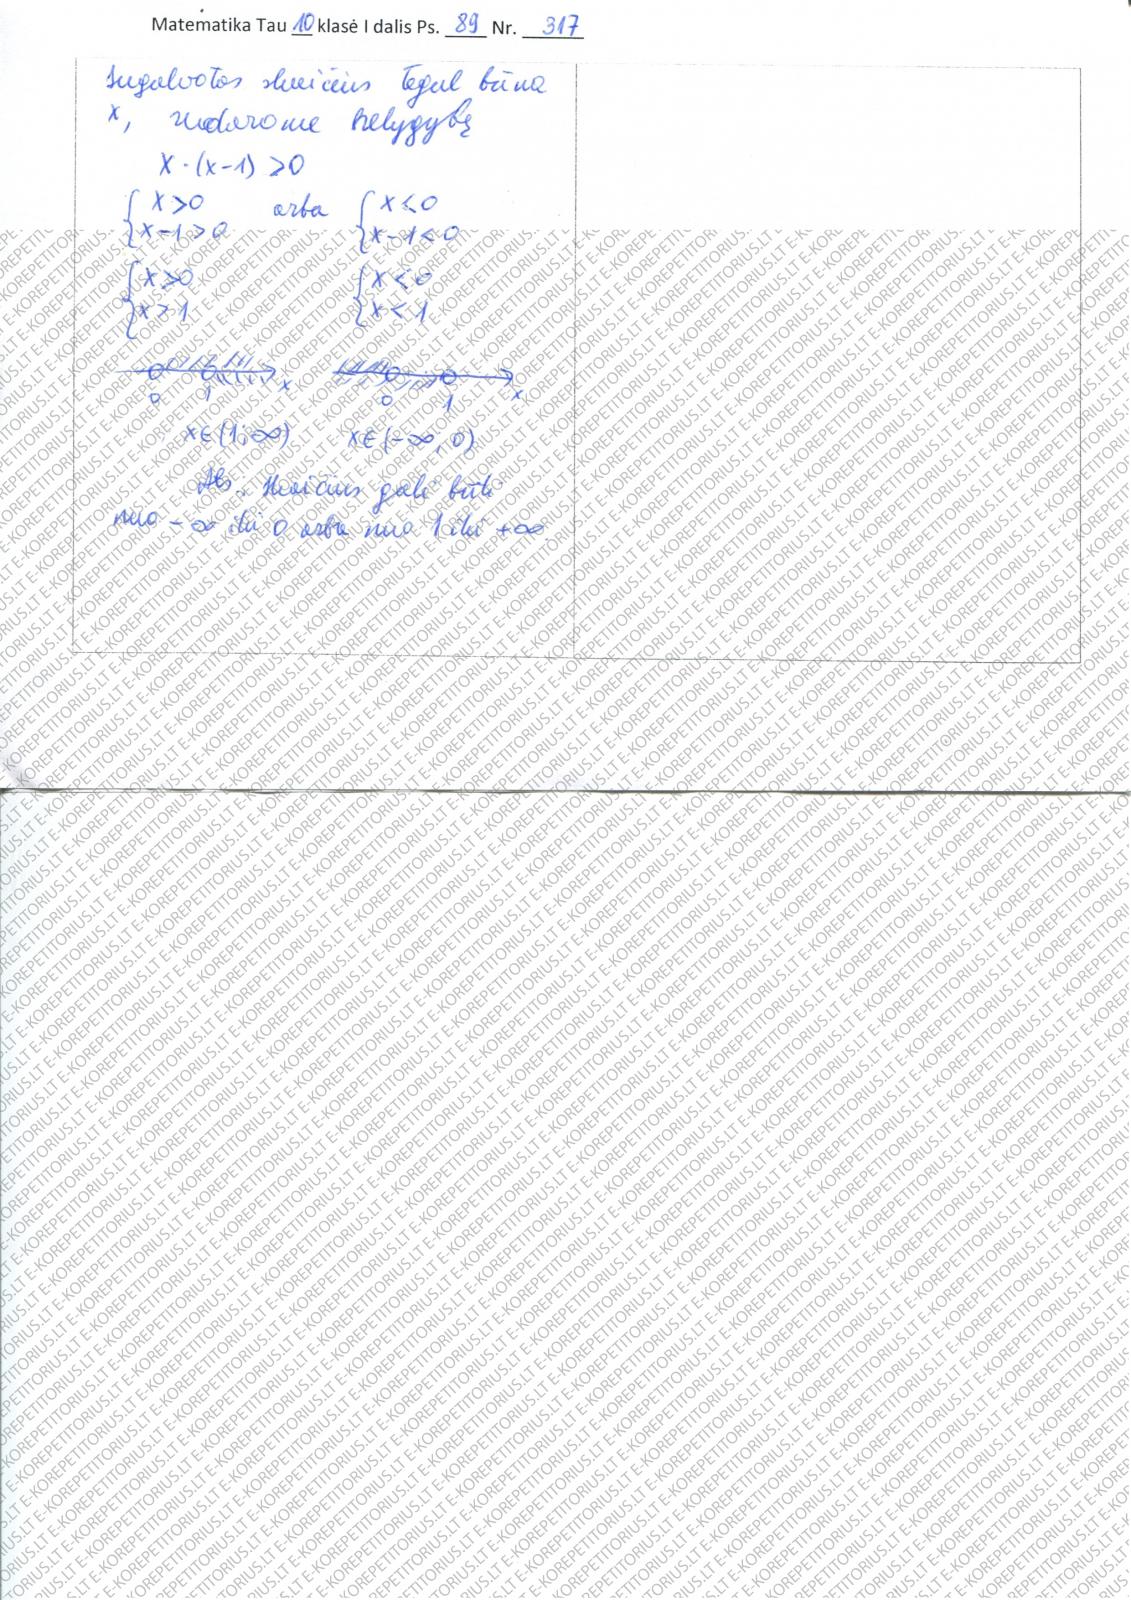 Matematika Tau 10 klasė I dalis Ps. 89 Nr. 317
Sugalvotas skaičius tegul būna
x, sudarome nelygybę
x · (x-1) > 0
{ x > 0 arba { x < 0
{ x-1 > 0 { x-1 < 0
{ x > 0 { x < 0
{ x > 1 { x < 1
0 1 x 0 1 x
x∈(1;∞) x∈(-∞, 0)
Ats.: skaičius gali būti
nuo -∞ iki 0 arba nuo 1 iki +∞
E-KOREPETITORIUS.LT